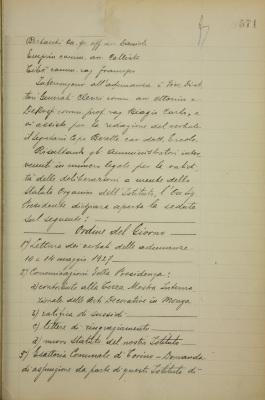 571
Comm. avv. Callisto
comm. rag. Francesco
Intervengono all'adunanza i Sigg. Diret-
tori Generali Clerici comm. avv. Vittorio e
comm. prof. rag. Biagio Carlo, e
vi assiste per la redazione del verbale
il Segretario Capo cav. dott. Ercole.
Risultando gli amministratori inter-
venuti in numero legale per la validi-
tà delle deliberazioni a mente dello
Statuto Organico dell'Istituto, l'On. Sig.
Presidente dichiara aperta la seduta
sul seguente:
Ordine del Giorno
1°) Lettura dei verbali delle adunanze
10 e 14 maggio 1927
2°) Comunicazioni della Presidenza:
a) contributo alla Terza Mostra Interna-
zionale delle Arti Decorative in Monza
b) ratifica di sussidi
c) lettere di ringraziamento
d) nuovo Statuto del nostro Istituto
3°) Esattoria Comunale di Torino - Domanda
di assunzione da parte di questo Istituto di